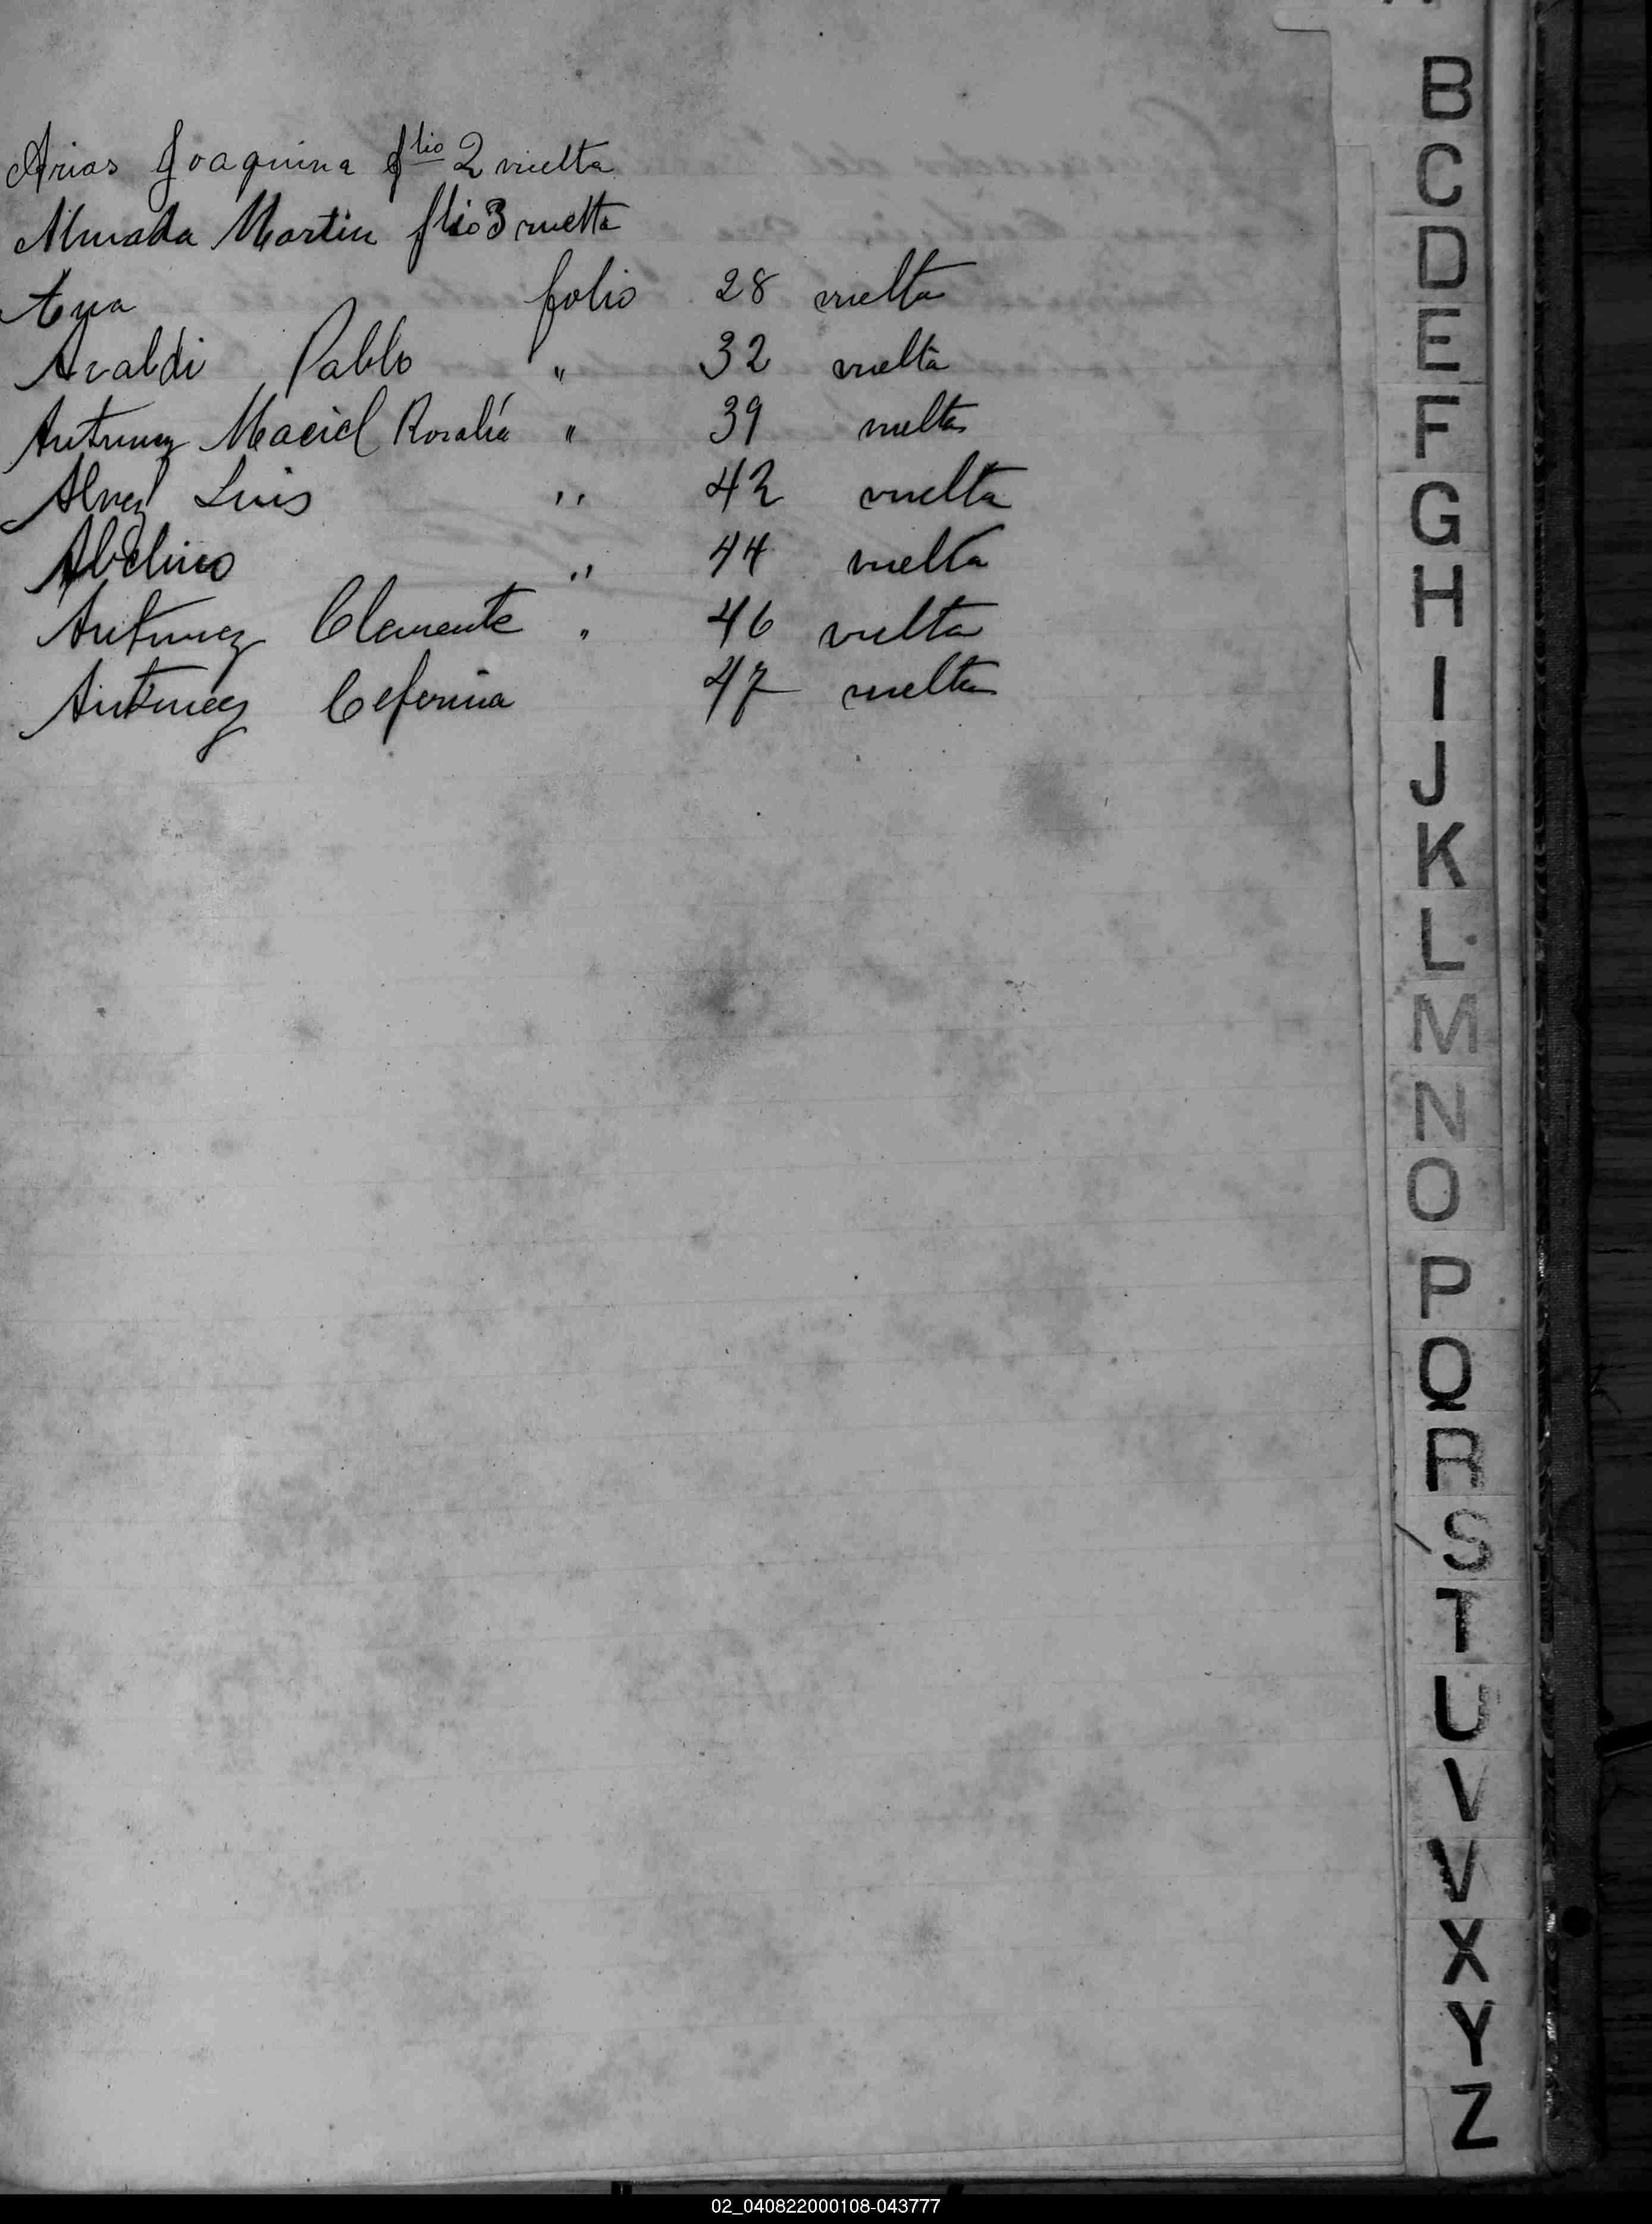 Arias Joaquina flio 2 vuelta
Almada Martin flio 3 vuelta
Ana folio 28 vuelta
Araldi Pablo " 32 vuelta
Antunez Maciel Rosalía " 39 vuelta
Alvez Luis " 42 vuelta
Abelino " 44 vuelta
Antunez Clemente " 46 vuelta
Antunez Ceferina 47 vuelta
B
C
D
E
F
G
H
I
J
K
L
M
N
O
P
Q
R
S
T
U
V
V
X
Y
Z
02_040822000108-043777